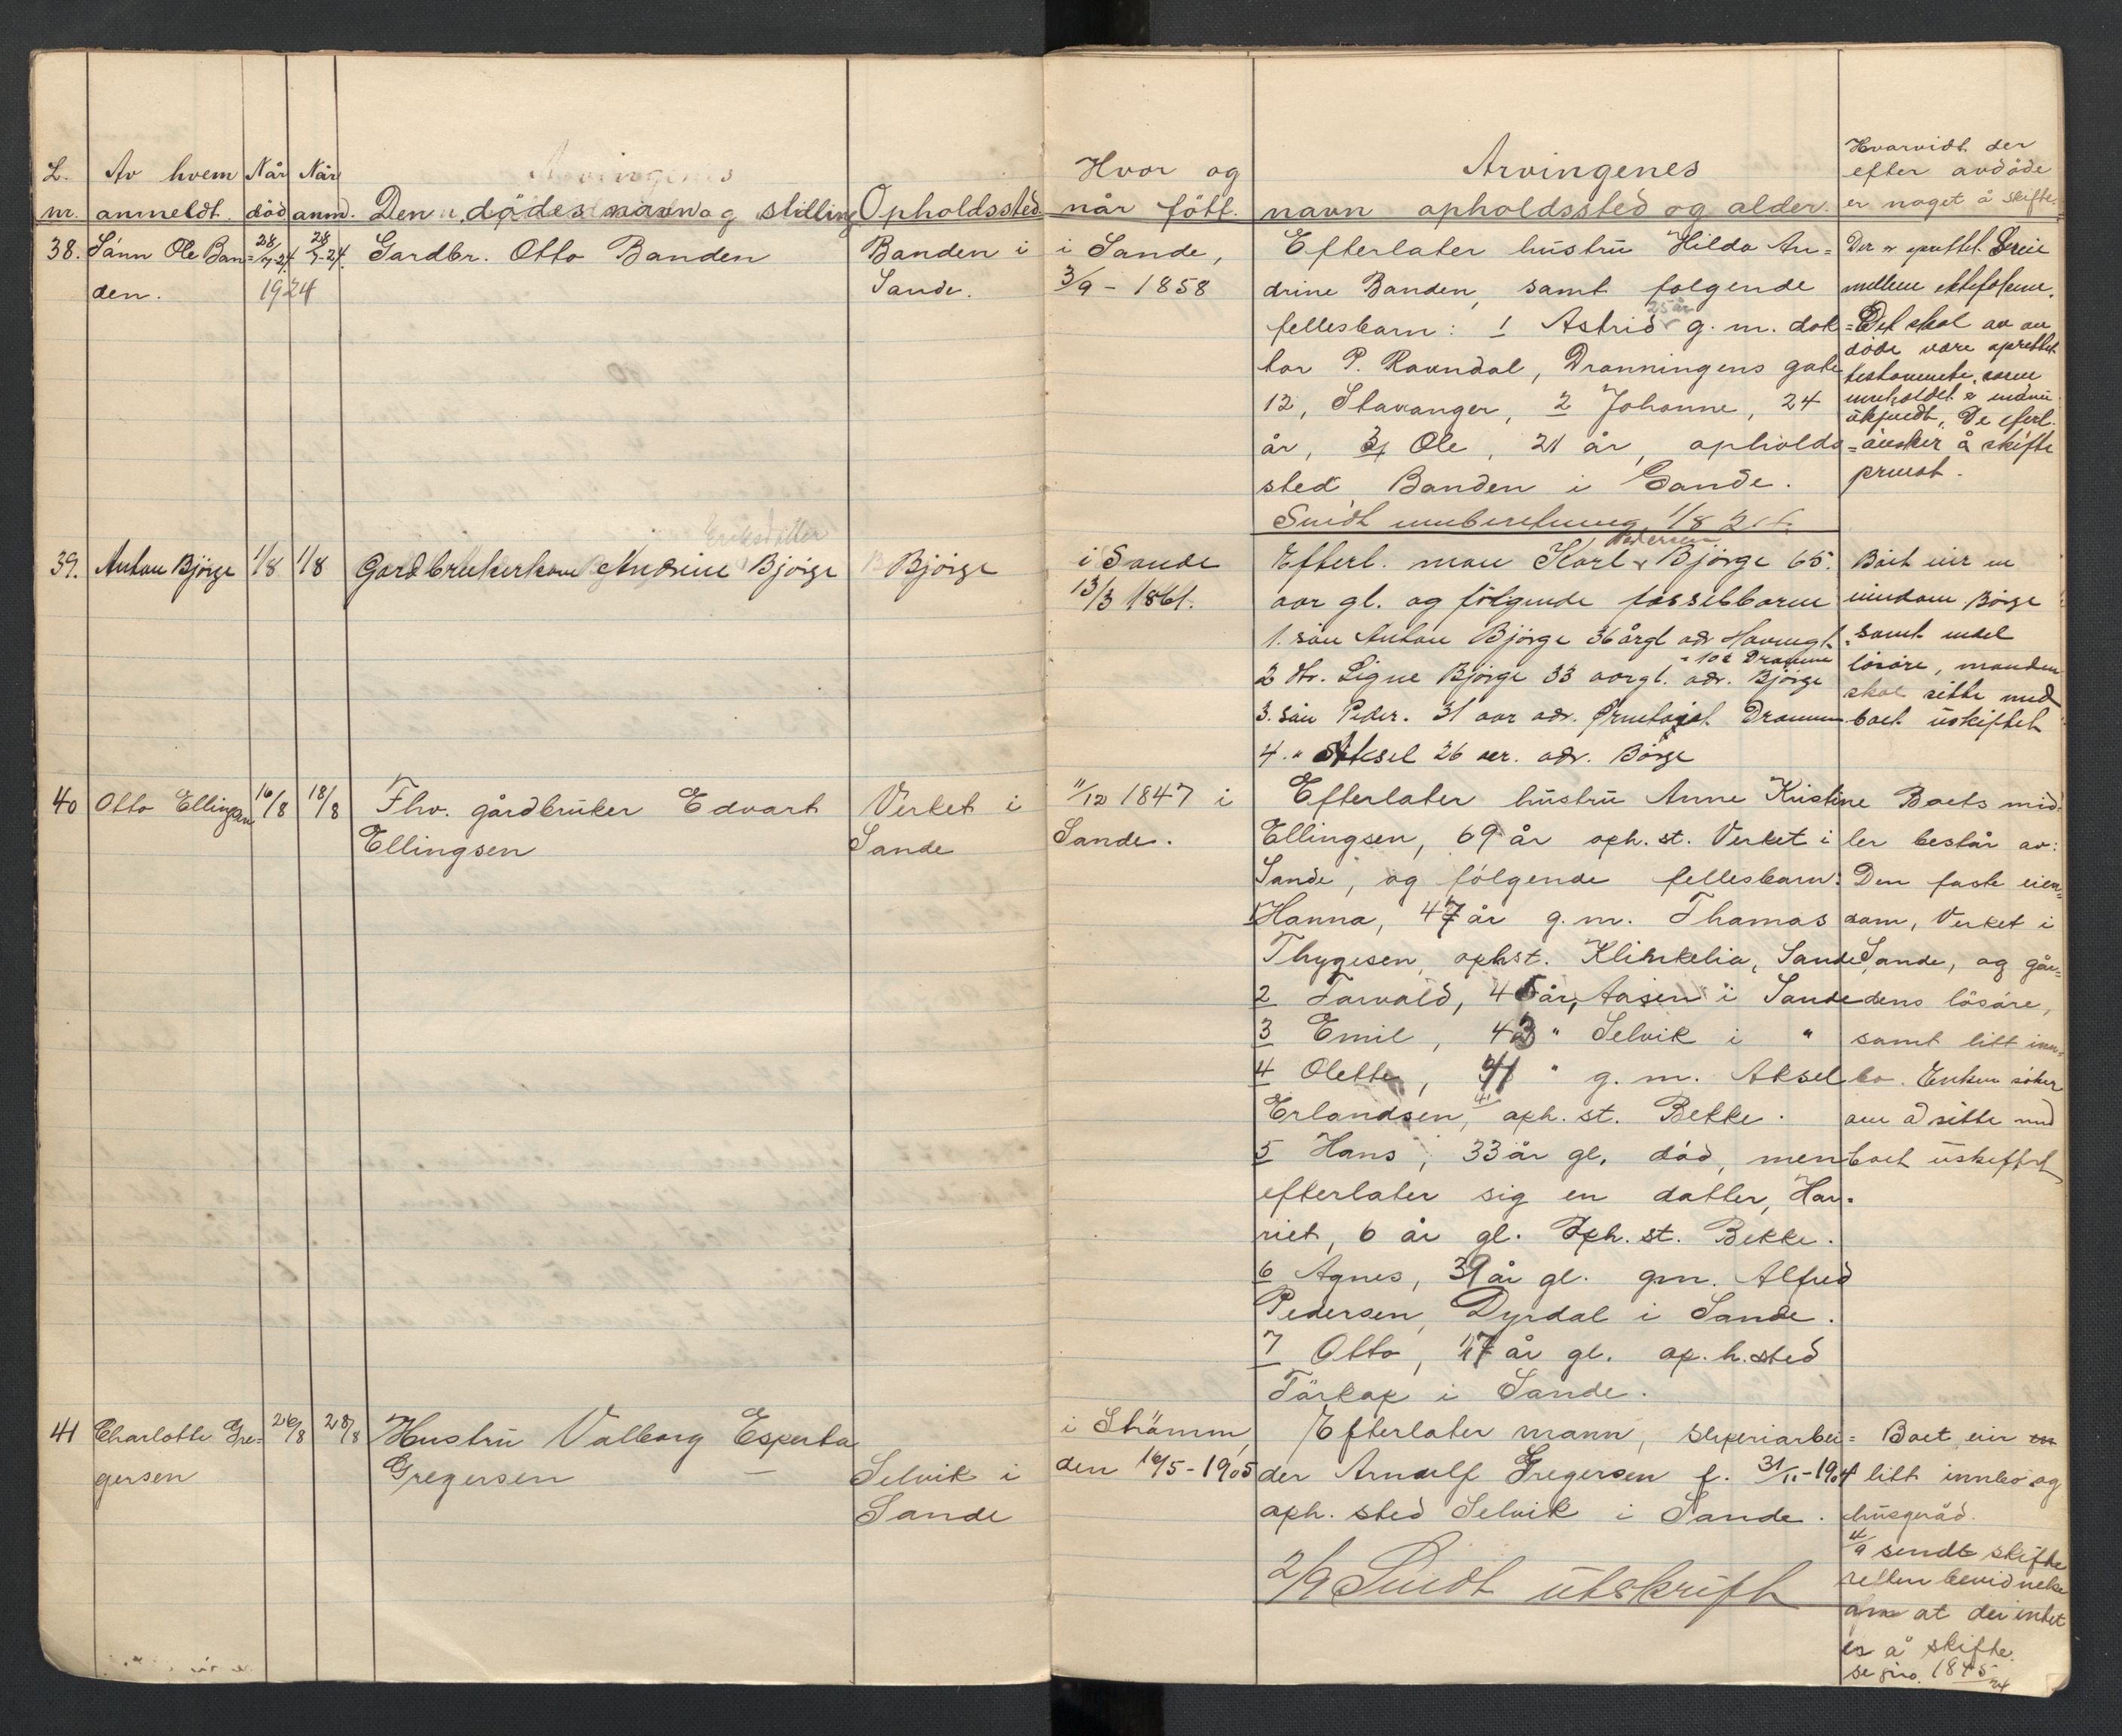 L. nr. | Av hvem anmeldt. | Når död | När anm. | Den dödes navn og stilling | Opholdssted | Hvor og når fött. | Arvingenes navn opholdssted og alder. | Hvorvidt der efter avdöde er noget å skifte.
38. Sönn Ole Ban=
den.
28/7-24. 28/7-24.
1924
Gardbr. Otto Banden
Banden i
Sande.
i Sande,
3/9 - 1858
Efterlater hustru Hilda An=
drine Banden, samt følgende
25 år
fellesbarn: 1 Astrid g. m. dok=
tor P. Ravndal, Dronningens gate
12, Stavanger, 2 Johanne, 24
år, 3 Ole, 21 år, opholds=
sted Banden i Sande.
Sendt innberetning 1/8 24.
Der er oprettet
mellem ektefolkene.
Det skal av av
döde være oprettet
testamente, som
inneholdet er
De efterl.
önsker å skifte
privat.
39. Anton Björge 1/8 1/8
Eriksdatter
Gardbrukerkone Andrine Björge
Björge
i Sande
13/3 1861.
Pedersen
Efterl. man Karl Björge 65
aar gl. og fölgende fellesbarn
1. sön Anton Björge 36 årgl adr Havnegt.
102 Drammen
2 dtr. Signe Björge 33 aargl. adr. Björge
3. sön Peder. 31 aar adr. Drammen
4. " Aksel 26 aar. adr. Börge
Boet eier en
eiendom Börge
samt endel
lösöre, manden
skal sitte med
boet uskiftet
40 Otto Ellingsen 16/8 18/8
Fhv. gårdbruker Edvart
Ellingsen
Verket i
Sande
11/12 1847 i
Sande.
Efterlater hustru Anne Kristine
Ellingsen, 69 år oph. st. Verket i
Sande, og fölgende fellesbarn:
1 Hanna, 47 år g. m. Thomas
Thygesen, ophst. Klinkelia, Sande
2 Torvald, 45 år, Aasen i Sande
3 Emil, 43 " Selvik i "
4 Olette, 41 " g. m. Aksel
41
Erlandsen, oph. st. Bekke.
5 Hans, 33 år gl, död, men
efterlater sig en datter, Har=
riet, 6 år gl. Oph. st. Bekke.
6 Agnes, 39 år gl. gm. Alfred
Pedersen, Dyrdal i Sande.
7 Otto, 17 år gl. op. h. sted
Tärkop i Sande.
Boets mid=
ler består av:
Den faste eien=
dom, Verket i
Sande, og går=
dens lösöre,
samt litt inn=
bo. Enken söker
om å sitte med
boet uskiftet
41 Charlotte Gre=
gersen
26/8 28/8
Hustru Valborg Esperta
Gregersen
Selvik i
Sande
i Strömm
den 16/5-1905
Efterlater mann, sliperiarbei=
der Arnulf Gregersen f. 31/11-1904
oph. sted Selvik i Sande.
2/9 Sendt utskrift
Boet eier
litt innbo og
husgeråd.
4/9 sendt skifte
retten bevidnelse
om at der intet
er å skifte.
se jrno. 1845/24